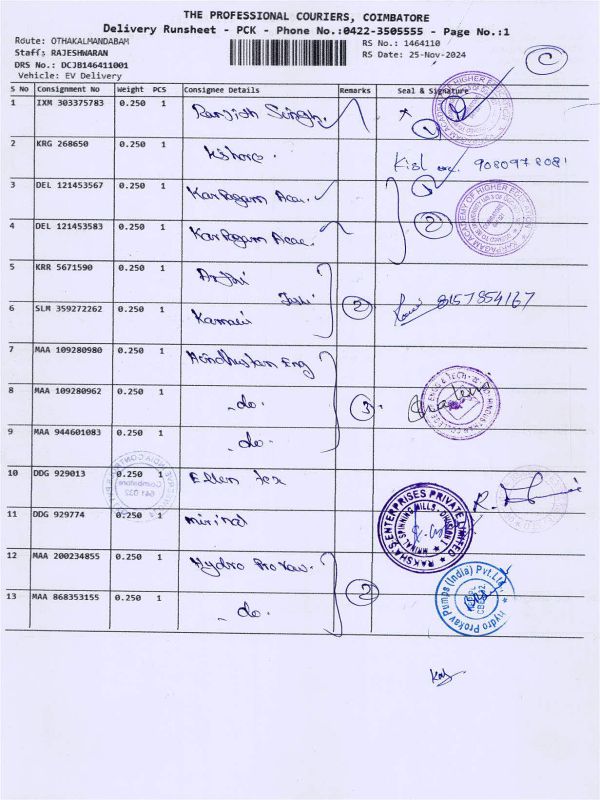 THE PROFESSIONAL COURIERS, COIMBATORE
Delivery Runsheet - PCK - Phone No.:0422-3505555 - Page No.:1
Route: OTHAKALMANDABAM
RS No.: 1464110
Staff: RAJESHWARAN
RS Date: 25-Nov-2024
DRS No.: DCJB146411001
Vehicle: EV Delivery
S No Consignment No Weight PCS Consignee Details Remarks Seal & Signature
1 IXM 303375783 0.250 1 Ranjith Singh
2 KRG 268650 0.250 1 Kishore 9080978081
3 DEL 121453567 0.250 1 Karpagam Aca.
4 DEL 121453583 0.250 1 Karpagam Acac. 2
5 KRR 5671590 0.250 1
6 SLM 359272262 0.250 1 2 8157854167
7 MAA 109280980 0.250 1 Hindhustan Eng
8 MAA 109280962 0.250 1 -do. 3
9 MAA 944601083 0.250 1 -do.
10 DDG 929013 0.250 1 Ellen Tex
11 DDG 929774 0.250 1 mirinal
RAKSHA'S ENTERPRISES PRIVATE LIMITED
12 MAA 200234855 0.250 1 Hydro Prokav.
13 MAA 868353155 0.250 1 -do. 2
Hydro Prokav Pumps (India) Pvt.Ltd.